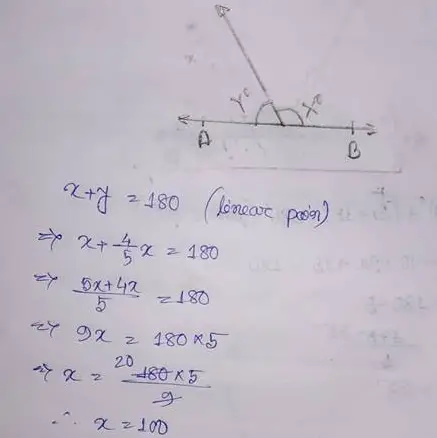 Y° X°
A B
x+y = 180 (linear pair)
⇒ x + 4/5 x = 180
⇒ 5x+4x/5 = 180
⇒ 9x = 180×5
⇒ x = 20 180×5/9
∴ x = 100